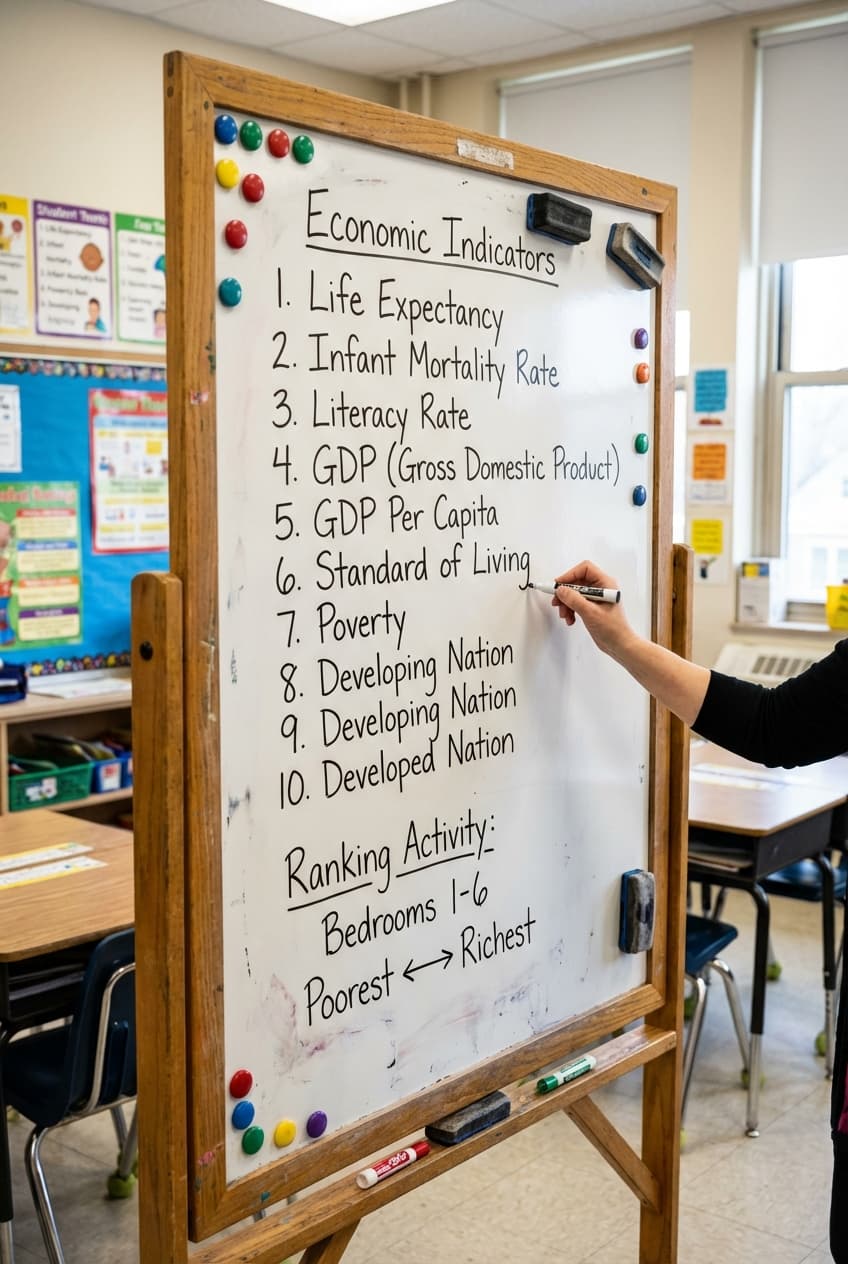 Economic Indicators
1. Life Expectancy
2. Infant Mortality Rate
3. Literacy Rate
4. GDP (Gross Domestic Product)
5. GDP Per Capita
6. Standard of Living
7. Poverty
8. Developing Nation
9. Developing Nation
10. Developed Nation
Ranking Activity:
Bedrooms 1-6
Poorest ⟷ Richest
1. Life Expectancy
2. Infant
Mortality